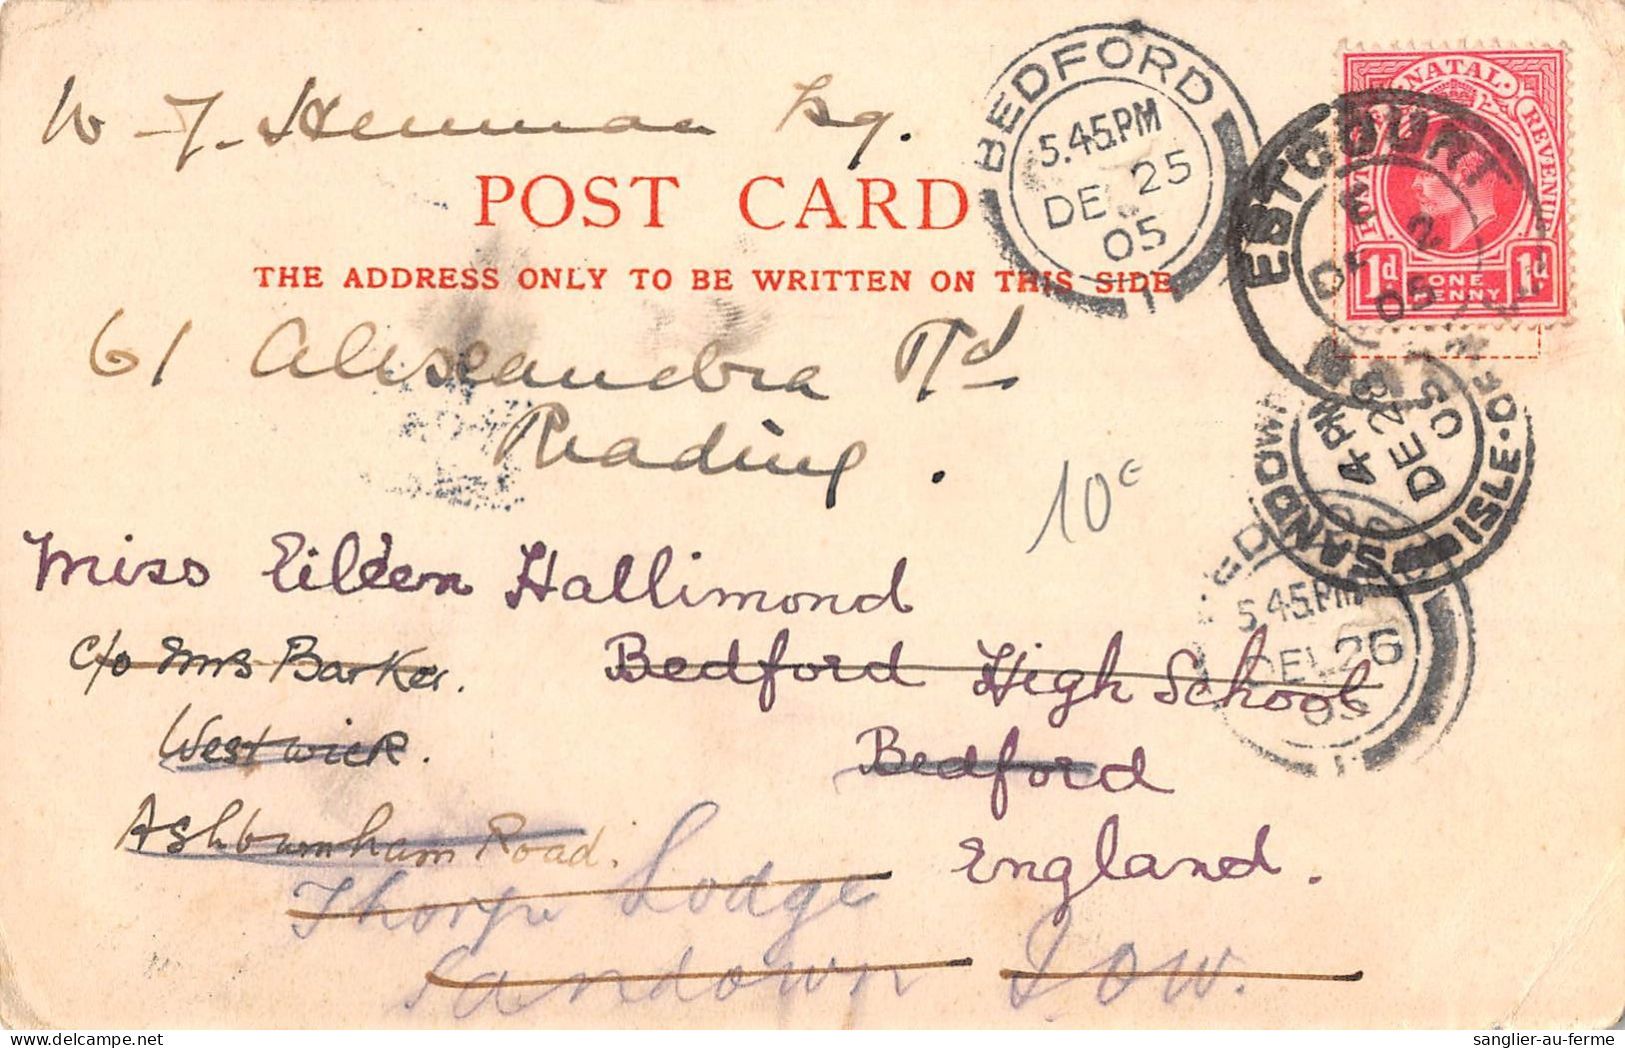 W. J. Henman Esq.
POST CARD
THE ADDRESS ONLY TO BE WRITTEN ON THIS SIDE
61 Alexandra Rd
Reading.
Miss Eileen Hallimond
c/o Mrs Barker.
Bedford High School
Westwick.
Bedford
Ashburnham Road.
England.
Thorpe Lodge
Sandown I O W.
10€
BEDFORD
5.45.PM
DE 25
05
1
ESTCOURT
DE 2
05
NATAL
POSTAGE
REVENUE
1d ONE PENNY 1d
SANDOWN ISLE·OF
4 PM
DE 28
05
5.45.PM
DE 26
05
sanglier-au-ferme